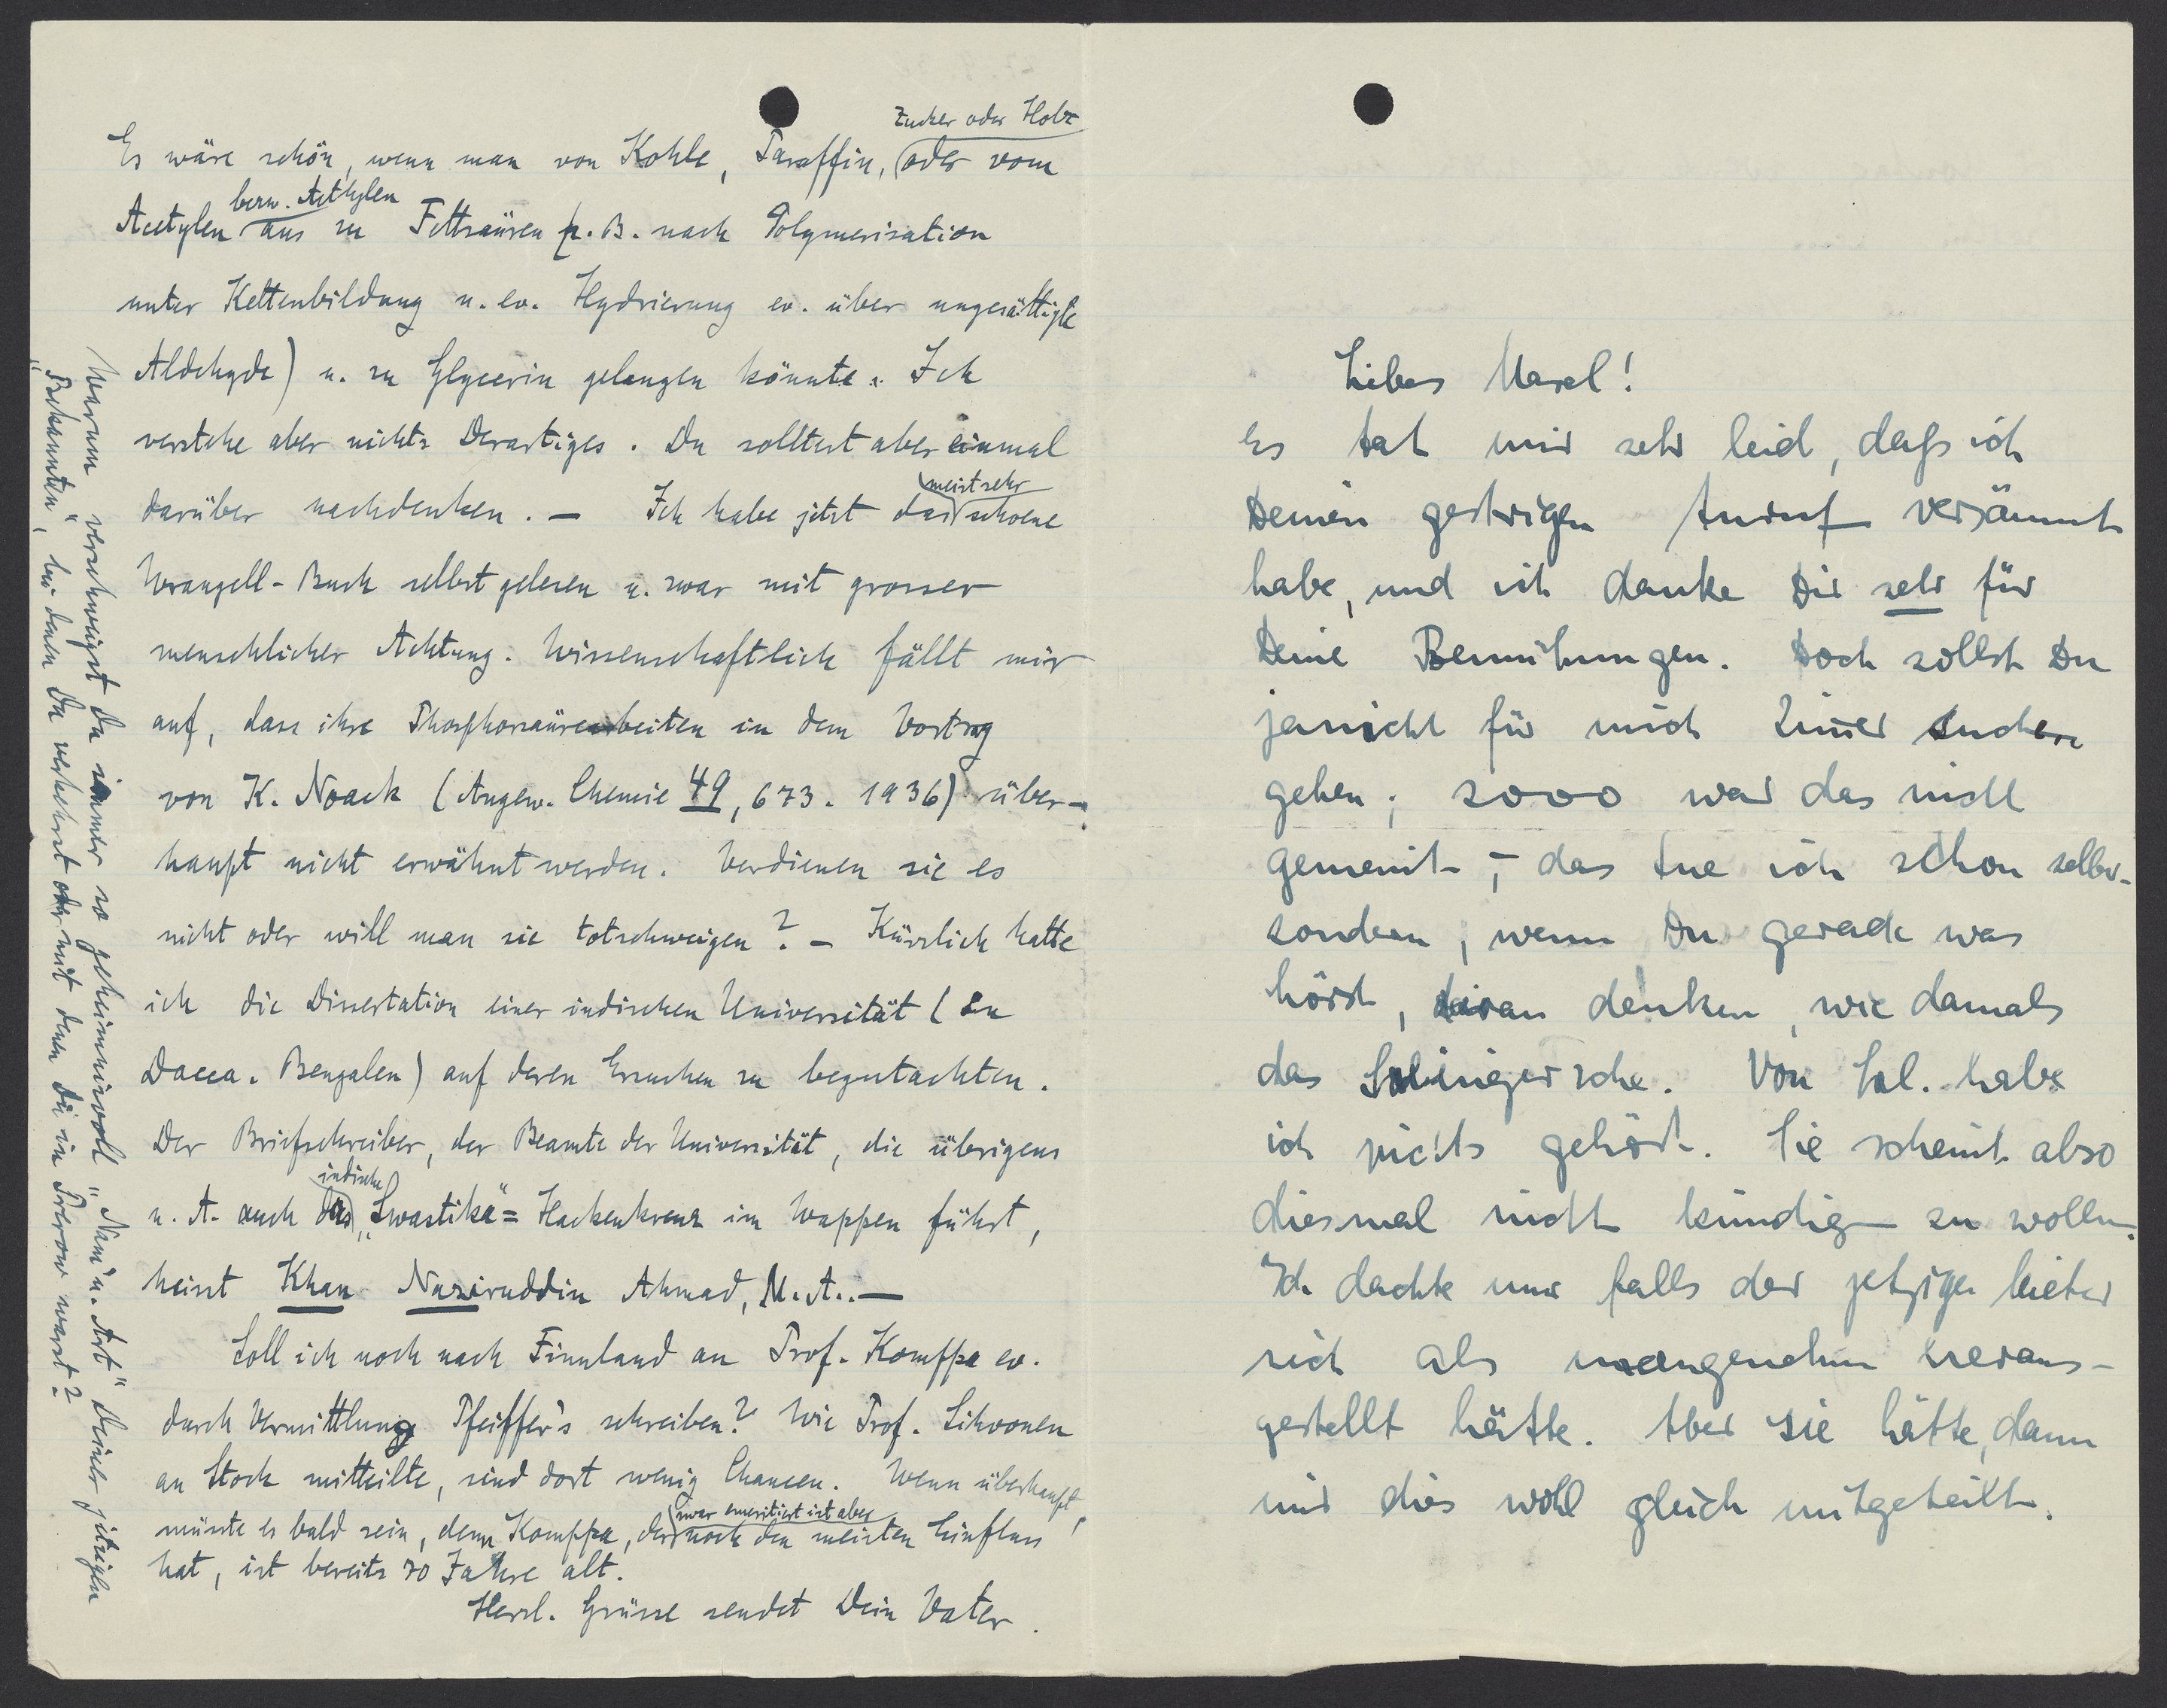 Es wäre schön, wenn man von Kohle, Paraffin, Zucker oder Holz oder vom
Acetylen bezw. Aethylen aus zu Fettsäuren (z. B. nach Polymerisation
unter Kettenbildung u. ev. Hydrierung ev. über ungesättigte
Aldehyde) u. zu Glycerin gelangen könnte. Ich
verstehe aber nichts Derartiges. Du solltest aber einmal
darüber nachdenken. — Ich habe jetzt das meist sehr schoene
Wrangell-Buch selbst gelesen u. zwar mit grosser
menschlicher Achtung. Wissenschaftlich fällt mir
auf, dass ihre Phosphorsäurearbeiten in dem Vortrag
von K. Noack (Angew. Chemie 49, 673. 1936) über-
haupt nicht erwähnt werden. Verdienen sie es
nicht oder will man sie totschweigen? — Kürzlich hatte
ich die Dissertation einer indischen Universität (zu
Dacca. Bengalen) auf deren Ersuchen zu begutachten.
Der Briefschreiber, der Beamte der Universität, die übrigens
u. A. auch das indische „Swastika" = Hackenkreuz im Wappen führt,
heisst Khan Naziruddin Ahmad, M. A.. —
Soll ich noch nach Finnland an Prof. Komppa ev.
durch Vermittlung Pfeiffer's schreiben? Wie Prof. Sihvonen
an Stock mitteilte, sind dort wenig Chancen. Wenn überhaupt,
müsste es bald sein, denn Komppa, der zwar emeritiert ist aber noch den meisten Einfluss
hat, ist bereits 70 Jahre alt.
Herzl. Grüsse sendet Dein Vater.
Warum verschweigst Du immer so geheimnisvoll „Nam' u. Art" Deiner jetzigen
„Bekannten", bei denen Du verkehrst oder mit denen Du in Prerow warst?
Liebes Marel!
Es tat mir sehr leid, daß ich
Deinen gestrigen Anruf versäumt
habe, und ich danke Dir sehr für
Deine Bemühungen. Doch sollst Du
ja nicht für mich Zimmer suchen
gehen; sooo war das nicht
gemeint, – das tue ich schon selber –
sondern, wenn Du gerade was
hörst, daran denken, wie damals
das Solingersche. Von Sol. habe
ich nichts gehört. Sie scheint also
diesmal nicht kündigen zu wollen.
Ich dachte nur falls der jetzige Mieter
sich als unangenehm heraus-
gestellt hätte. Aber sie hätte dann
mir dies wohl gleich mitgeteilt.